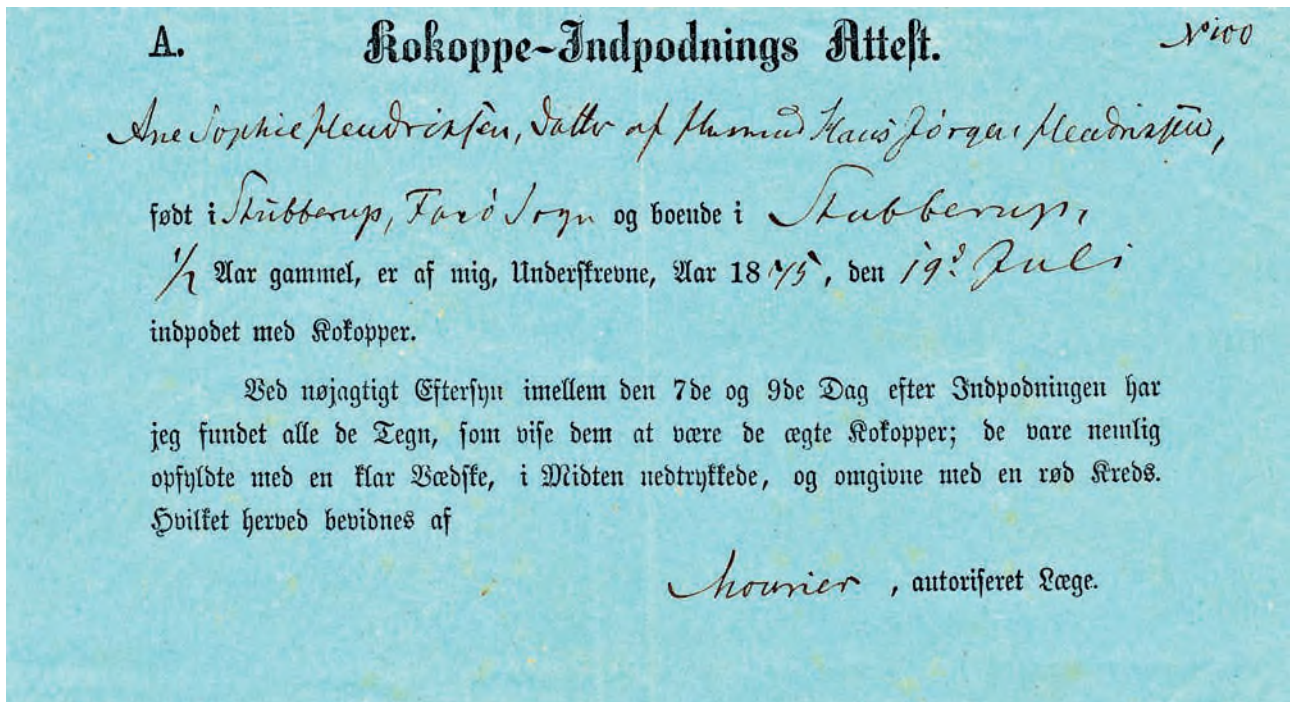 A. Kokoppe-Indpodnings Attest. No 100
Ane Sophie Hendriksen, datter af Husmd Hans Jørgen Hendriksen,
født i Stubberup, Faxø Sogn og boende i Stubberup,
1/2 Aar gammel, er af mig, Underskrevne, Aar 1875, den 19d Juli
indpodet med Kokopper.
Ved nøjagtigt Eftersyn imellem den 7de og 9de Dag efter Indpodningen har
jeg fundet alle de Tegn, som vise dem at være de ægte Kokopper; de vare nemlig
opfyldte med en klar Vædske, i Midten nedtrykkede, og omgivne med en rød Kreds.
Hvilket herved bevidnes af
Mourier, autoriseret Læge.